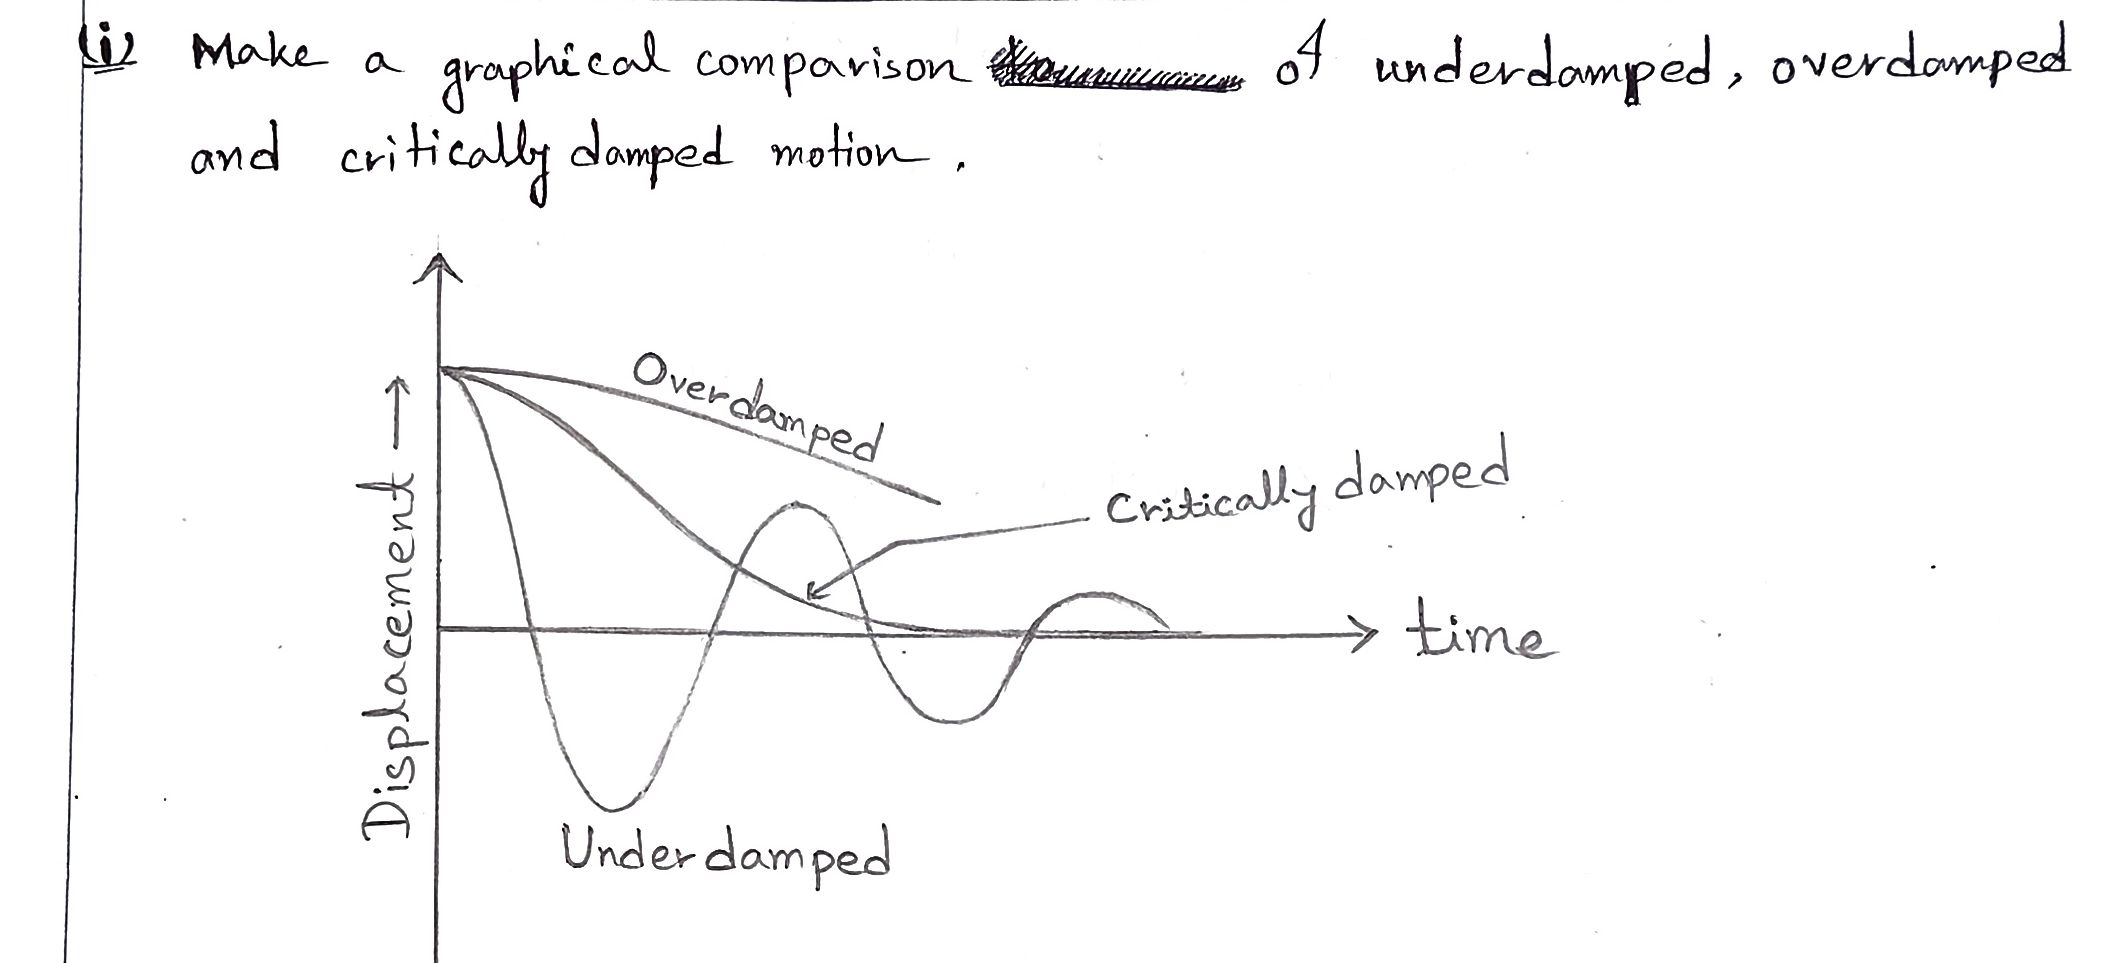 (i) Make a graphical comparison of underdamped, overdamped
and critically damped motion.
Overdamped
Critically damped
Displacement →
time
Underdamped